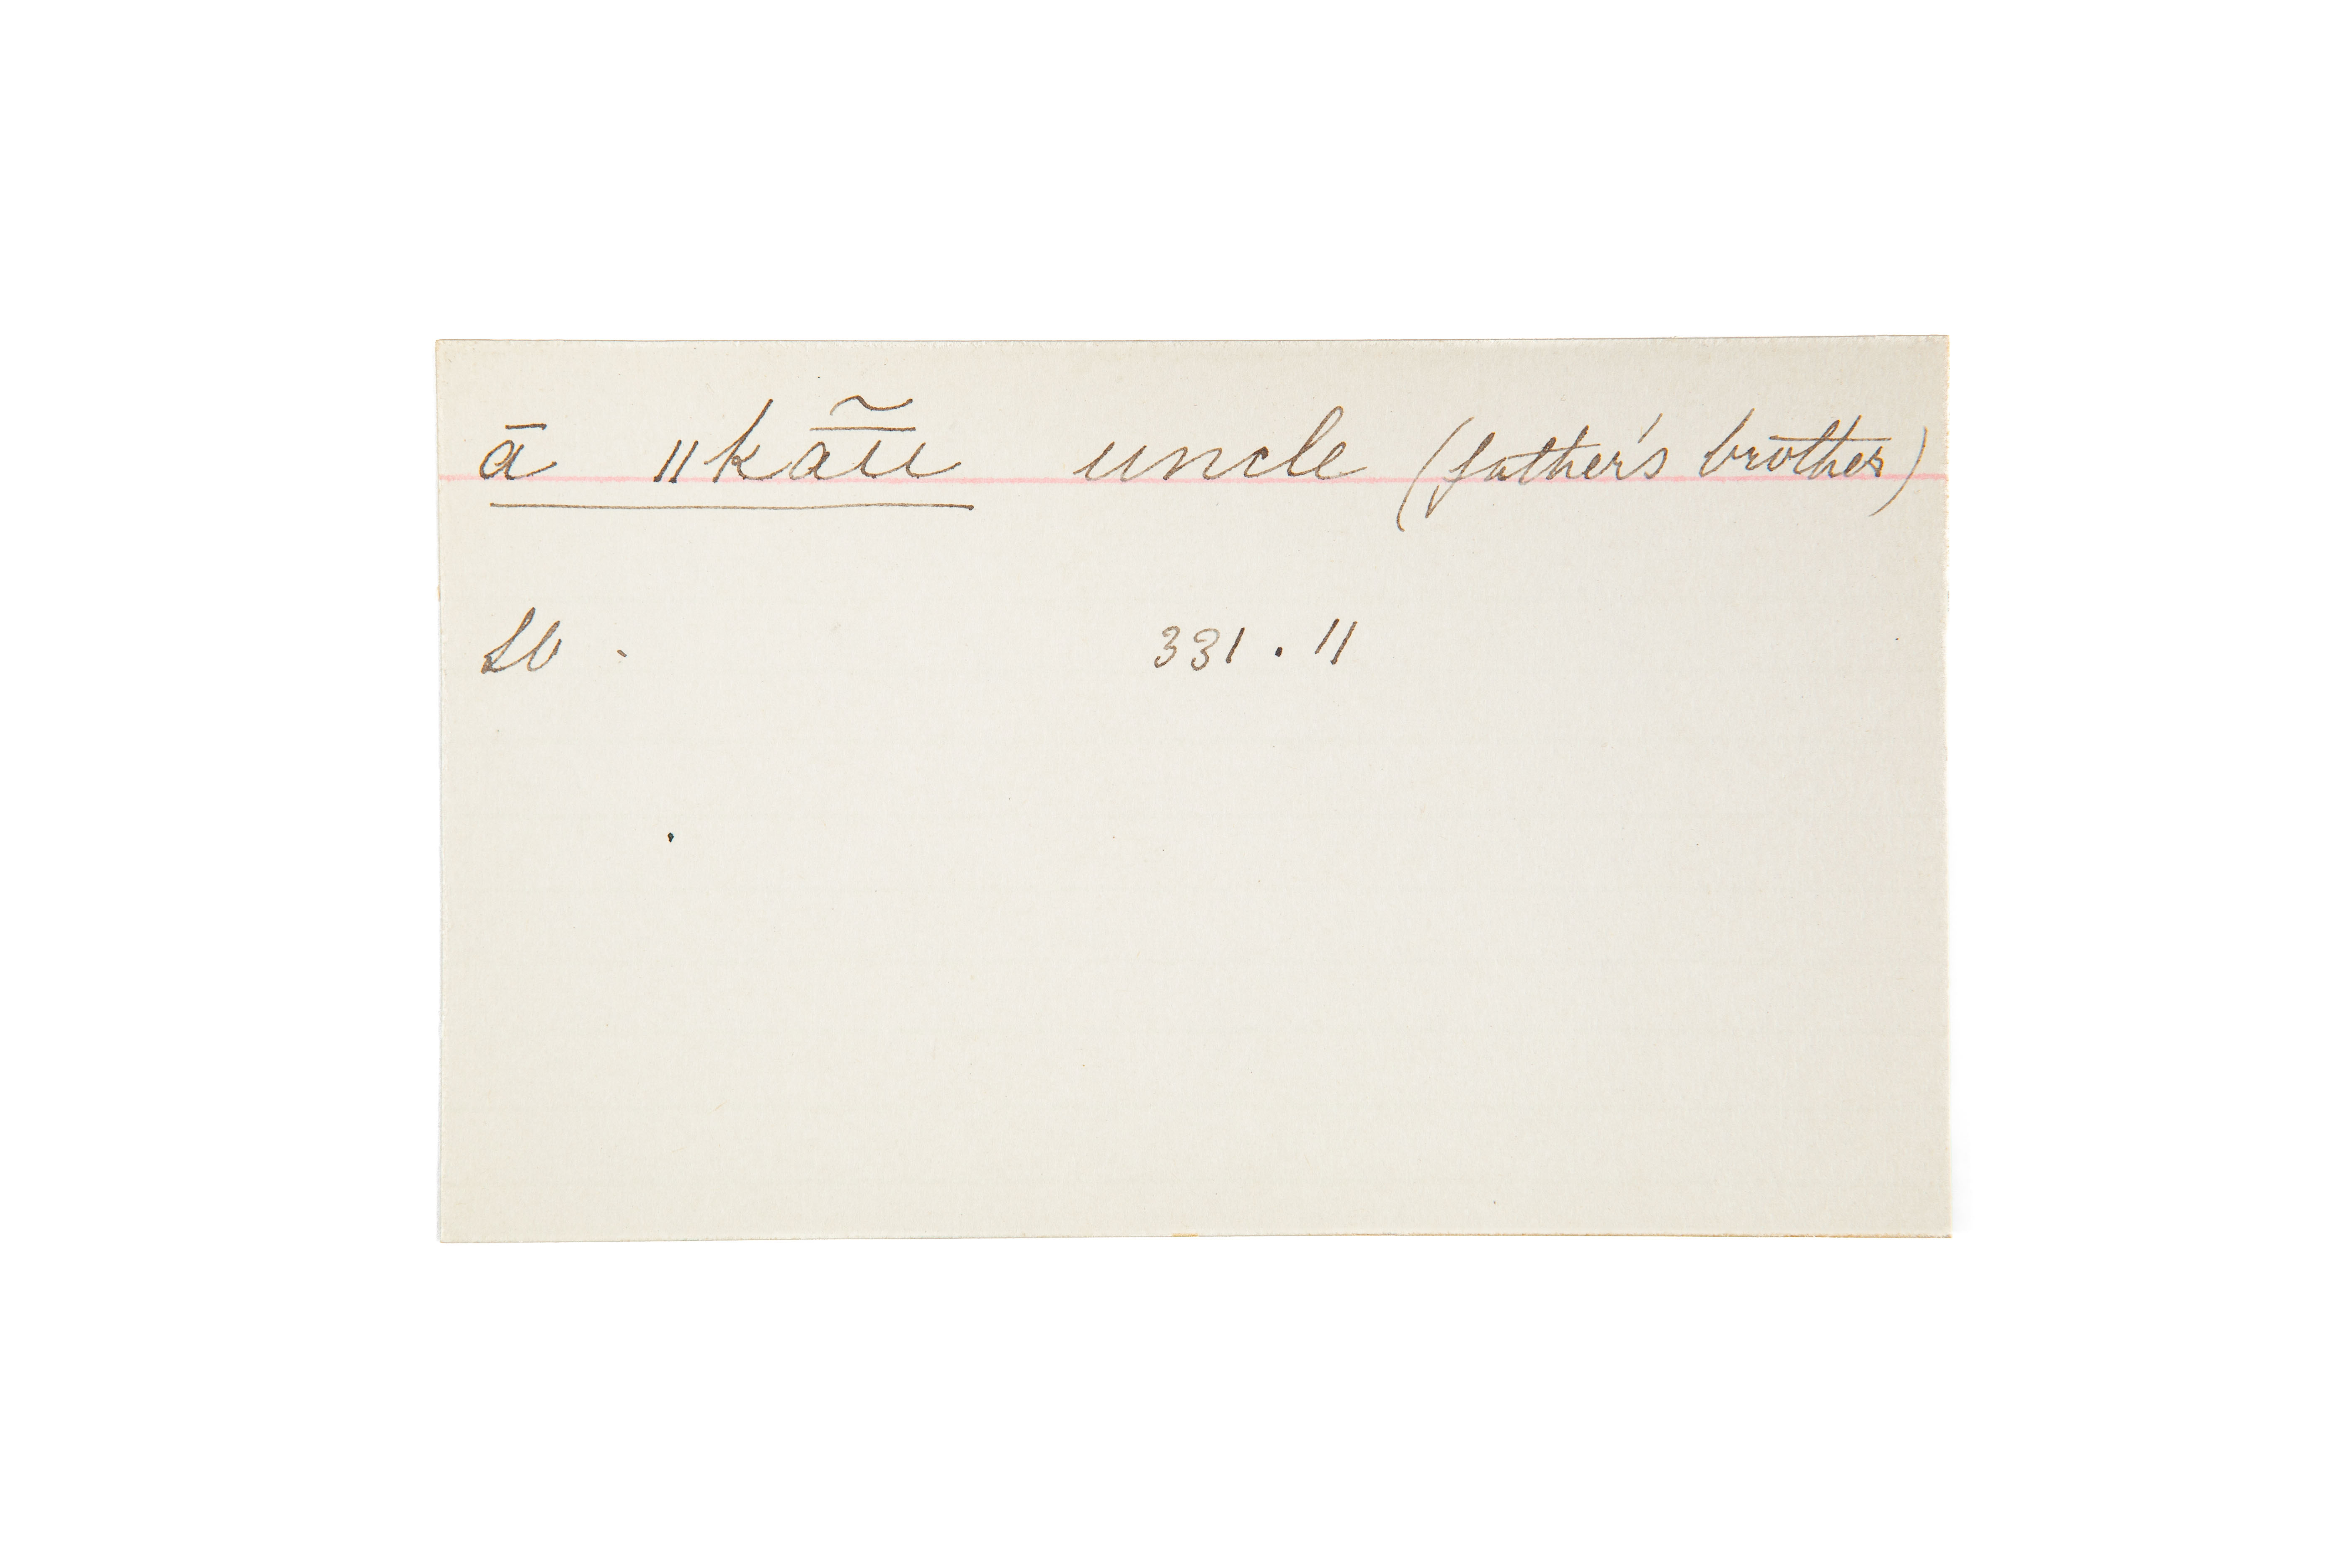 ā ǁkā̃ũ uncle (father's brother)
Lb. 331.11